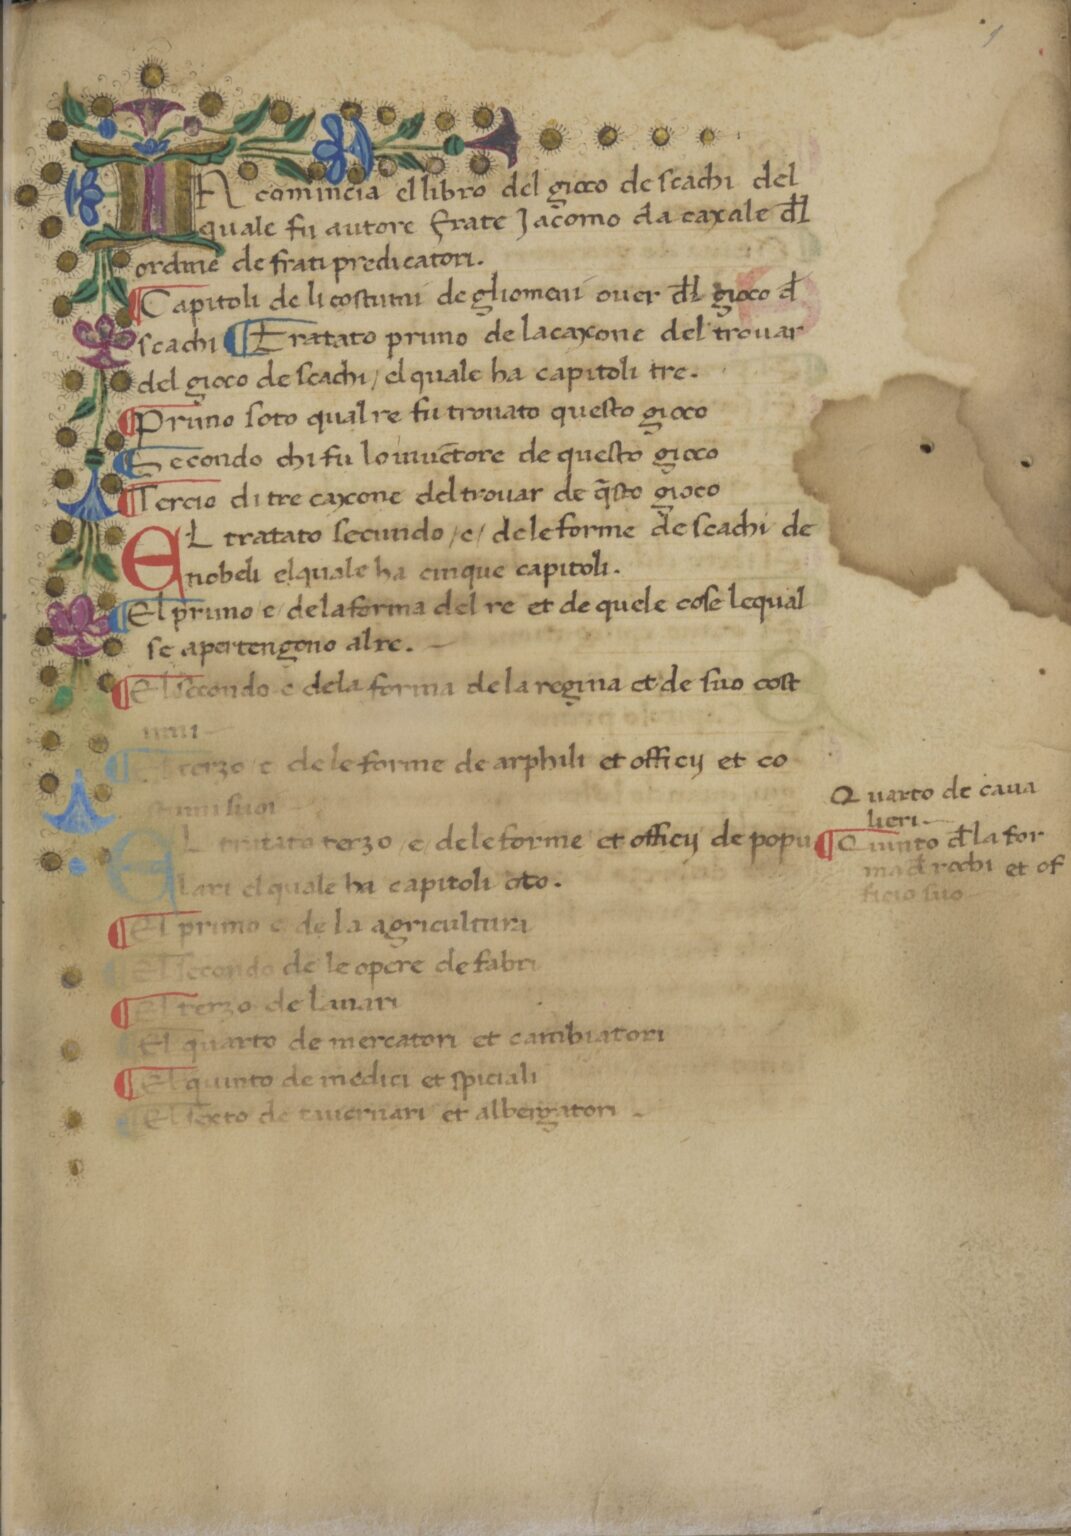 IN comincia el libro del gioco de scachi del
quale fu autore frate Jacomo da caxale d̄l
ordine de frati predicatori.
Capitoli de li costumi de gliomeni over d̄l gioco d̄
scachi Tratato primo de la caxone del trovar
del gioco de scachi / el quale ha capitoli tre.
Primo soto qual re fu trovato questo gioco
Secondo chi fu lo invētore de questo gioco
Tercio di tre caxone del trovar de q̄sto gioco
EL tratato secundo /e/ de le forme de scachi de
nobeli el quale ha cinque capitoli.
El primo e de la forma del re et de quele cose le qual
se apertengono al re.
El secondo e de la forma de la regina et de suo cost
umi
El terzo e de le forme de arphili et officij et co
stumi suoi
EL tratato terzo /e/ de le forme et officij de popu
lari el quale ha capitoli oto.
El primo e de la agricultura
El secondo de le opere de fabri
El terzo de lanari
El quarto de mercatori et cambiatori
El quinto de medici et spiciali
El sexto de tavernari et albergatori
Quarto de cava
lieri
Quinto d̄ la for
ma d̄ rochi et of
ficio suo